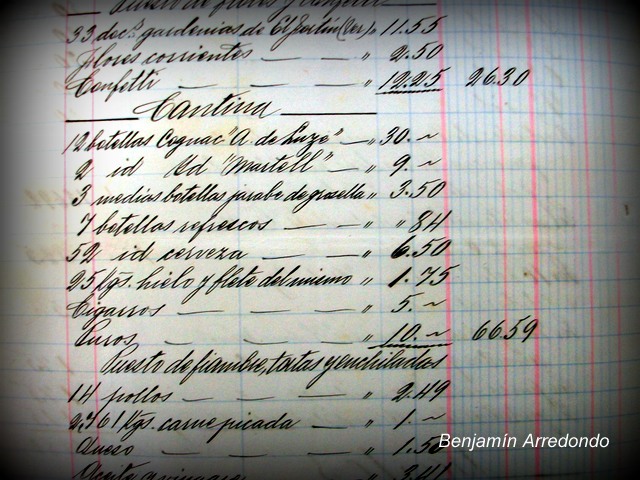 Puesto de flores y confetti
33 doc.s gardenias de El Fortín (Ver) " 11.55
Flores corrientes — — " 2.50
Confetti — — — " 12.25 26.30
Cantina
12 botellas Cognac "A. de Luze" — " 30. ~
2 id id "Martell" — " 9. ~
3 medias botellas jarabe de grosella " 3.50
7 botellas refrescos — — " " 84
52 id cerveza — — " 6.50
25 Kgs. hielo y flete del mismo " 1.75
Cigarros — — — " 5. ~
Puros — — — " 10. ~ 66.59
Puesto de fiambre, tortas y enchiladas
14 pollos — — — " 2.49
Kgs. carne picada — " 1. ~
Queso — — — " 1.50
Aceite y vinagre — " 3.41
Benjamín Arredondo